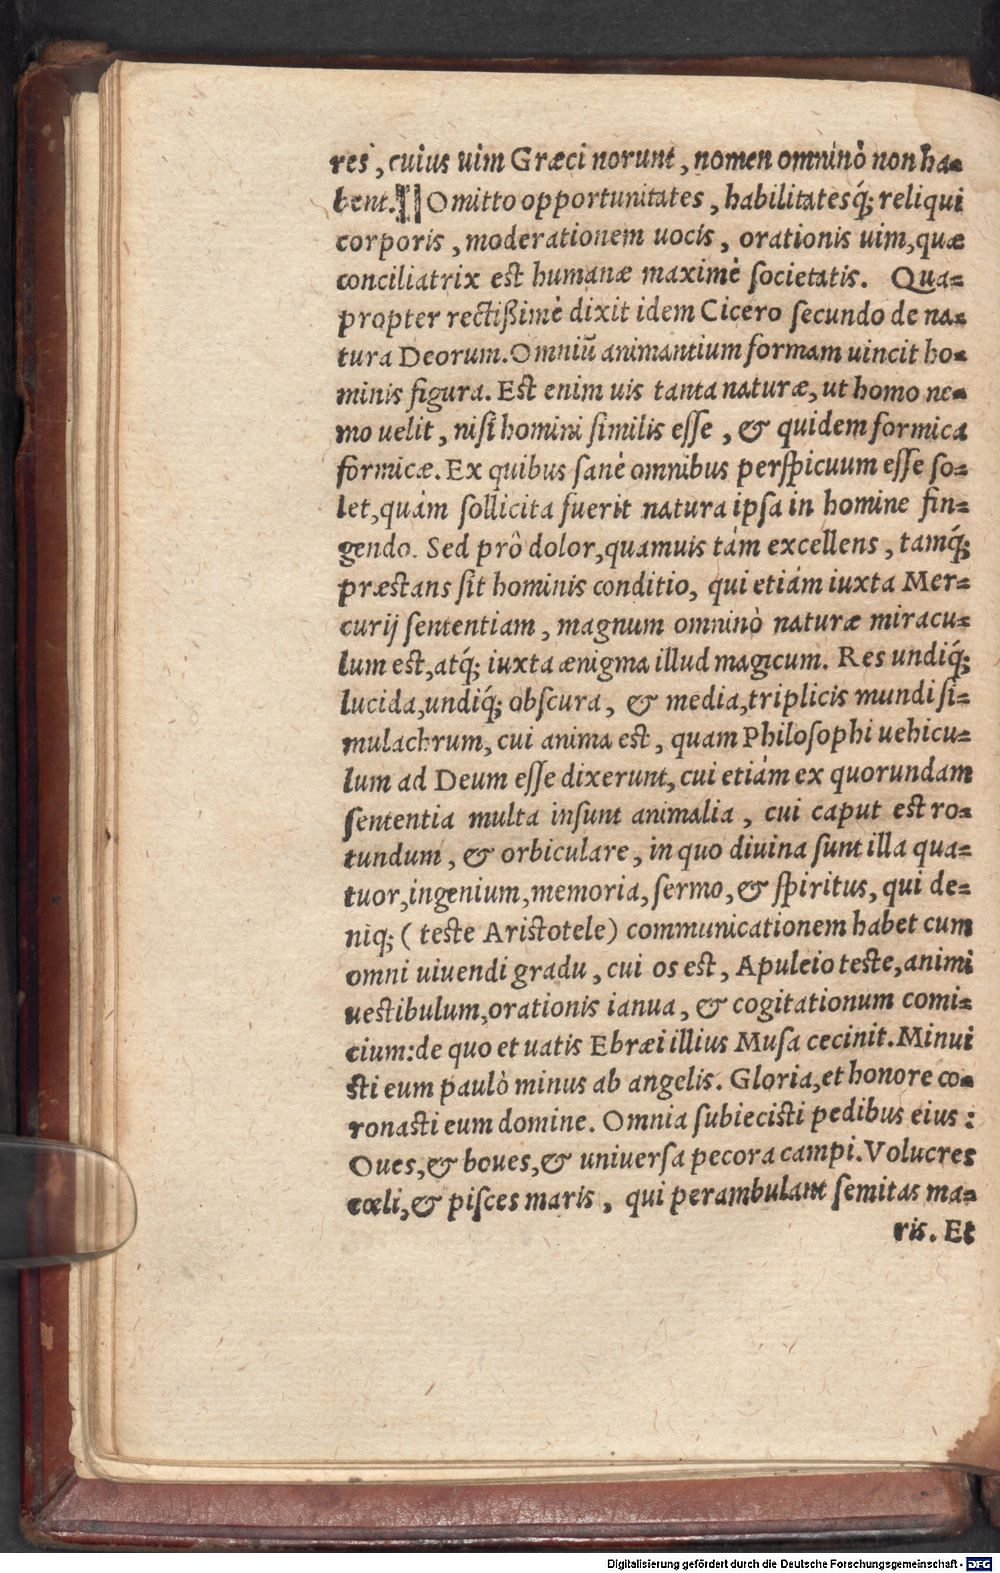 res, cuius uim Græci norunt, nomen omninò non ha-
bent. Omitto opportunitates, habilitatesq́; reliqui
corporis, moderationem uocis, orationis uim, quæ
conciliatrix est humanæ maximè societatis. Qua-
propter rectißimè dixit idem Cicero secundo de na-
tura Deorum. Omniũ animantium formam uincit ho-
minis figura. Est enim uis tanta naturæ, ut homo ne-
mo uelit, nisi homini similis esse, & quidem formica
formicæ. Ex quibus sanè omnibus perspicuum esse so-
let, quàm sollicita fuerit natura ipsa in homine fin-
gendo. Sed prô dolor, quamuis tám excellens, tamq́;
præstans sit hominis conditio, qui etiám iuxta Mer-
curij sententiam, magnum omninò naturæ miracu-
lum est, atq́; iuxta ænigma illud magicum. Res undiq́;
lucida, undiq́; obscura, & media, triplicis mundi si-
mulachrum, cui anima est, quam Philosophi uehicu-
lum ad Deum esse dixerunt, cui etiám ex quorundam
sententia multa insunt animalia, cui caput est ro-
tundum, & orbiculare, in quo diuina sunt illa qua-
tuor, ingenium, memoria, sermo, & spiritus, qui de-
niq; (teste Aristotele) communicationem habet cum
omni uiuendi gradu, cui os est, Apuleio teste, animi
uestibulum, orationis ianua, & cogitationum comi-
cium: de quo et uatis Ebræi illius Musa cecinit. Minui
sti eum paulò minus ab angelis. Gloria, et honore co-
ronasti eum domine. Omnia subiecisti pedibus eius:
Oues, & boues, & uniuersa pecora campi. Volucres
cœli, & pisces maris, qui perambulant semitas ma-
ris. Et
Digitalisierung gefördert durch die Deutsche Forschungsgemeinschaft - DFG